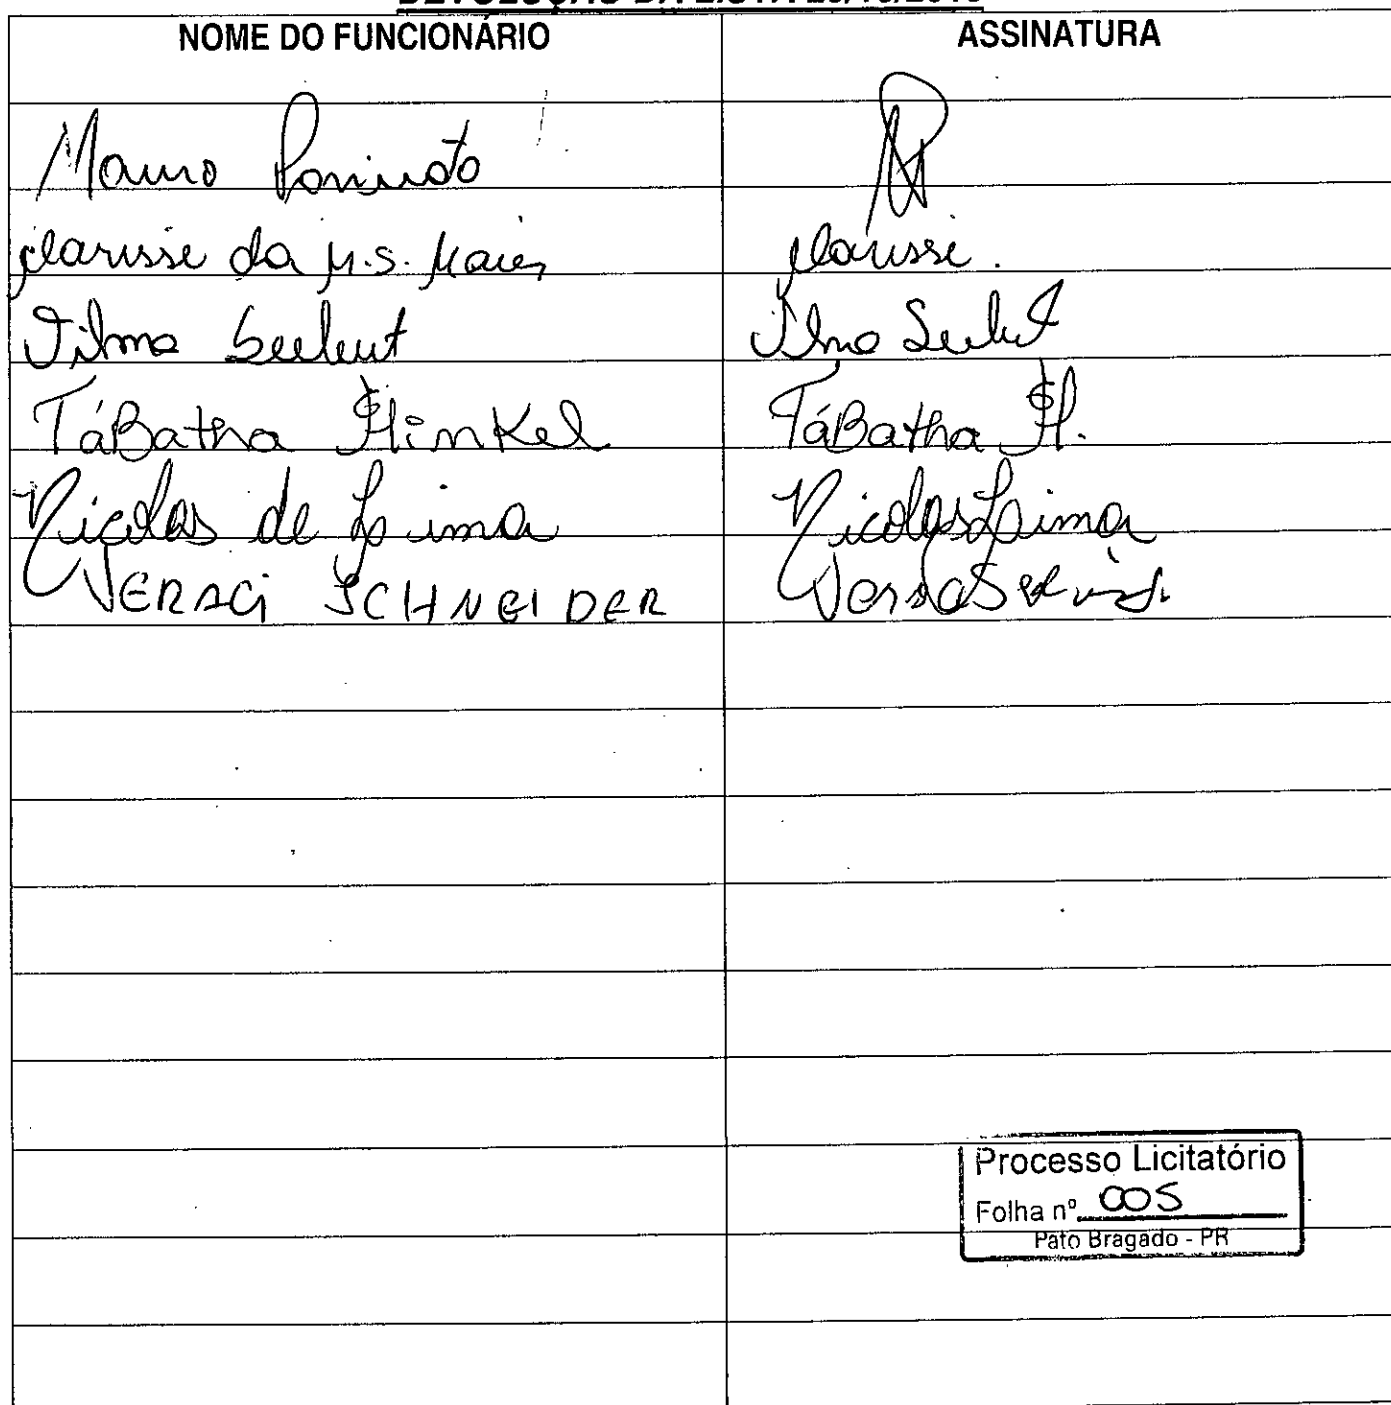 DEVOLUÇÃO DA LISTA
NOME DO FUNCIONÁRIO ASSINATURA
Mauro
Clarisse da M.S. Maier Clarisse.
Vilma Seelent
TáBatha Hinkel TáBatha H.
Nicolas de Lima Nicolas Lima
VERACi SCHNEIDER
Processo Licitatório
Folha nº 005
Pato Bragado - PR